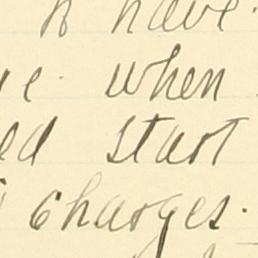 to have
when
ed start
charges.